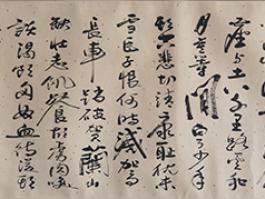 塵与土八千里路雲和
月莫等閒白了少年
頭空悲切靖康耻猶未
雪臣子恨何時滅駕
長車踏破賀蘭山
缺壮志飢餐胡虜肉笑
談渴飲匈奴血待從頭